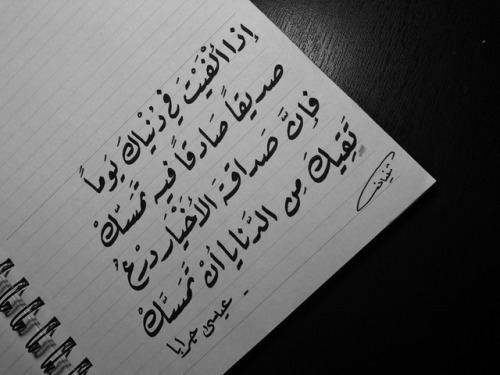 إذا ألْفَيْتَ في دُنْيَاكَ يَوماً
صديقاً صَادقاً فيه تمَسّكْ
فإنَّ صَداقة الأَخْيَار دِرْعٌ
تَقِيكَ مِن الدَّنايا أنْ تَمَسَّكْ
- عيسى جرابا